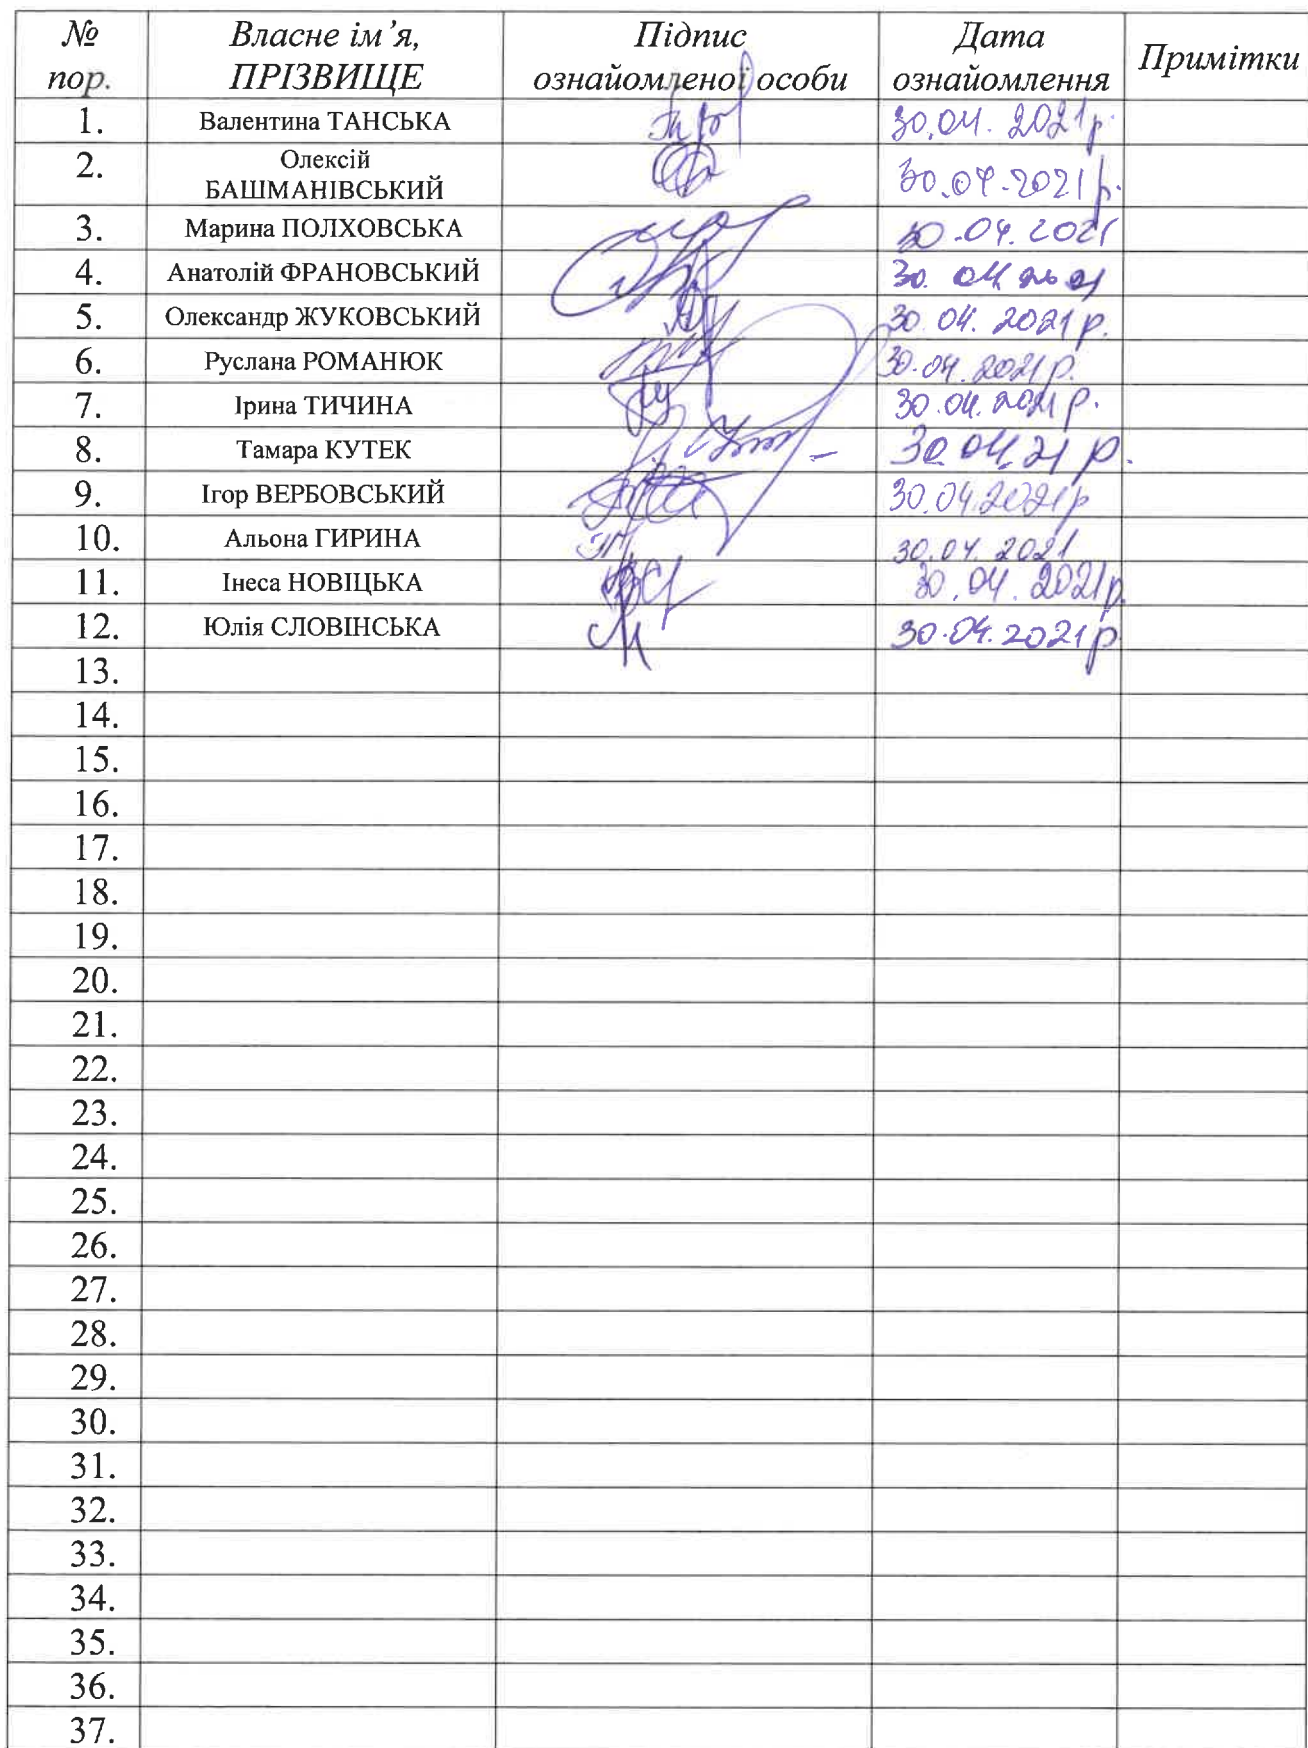 № пор. Власне ім’я, ПРІЗВИЩЕ Підпис ознайомленої особи Дата ознайомлення Примітки
1. Валентина ТАНСЬКА 30.04. 2021р.
2. Олексій БАШМАНІВСЬКИЙ 30.04.2021р.
3. Марина ПОЛХОВСЬКА 30.04.2021
4. Анатолій ФРАНОВСЬКИЙ 30. 04 2021
5. Олександр ЖУКОВСЬКИЙ 30.04.2021р.
6. Руслана РОМАНЮК 30.04.2021р.
7. Ірина ТИЧИНА 30.04.2021р.
8. Тамара КУТЕК 30.04.21 р.
9. Ігор ВЕРБОВСЬКИЙ 30.04.2021р
10. Альона ГИРИНА 30.04.2021
11. Інеса НОВІЦЬКА 30.04.2021р.
12. Юлія СЛОВІНСЬКА 30.04.2021р
13.
14.
15.
16.
17.
18.
19.
20.
21.
22.
23.
24.
25.
26.
27.
28.
29.
30.
31.
32.
33.
34.
35.
36.
37.